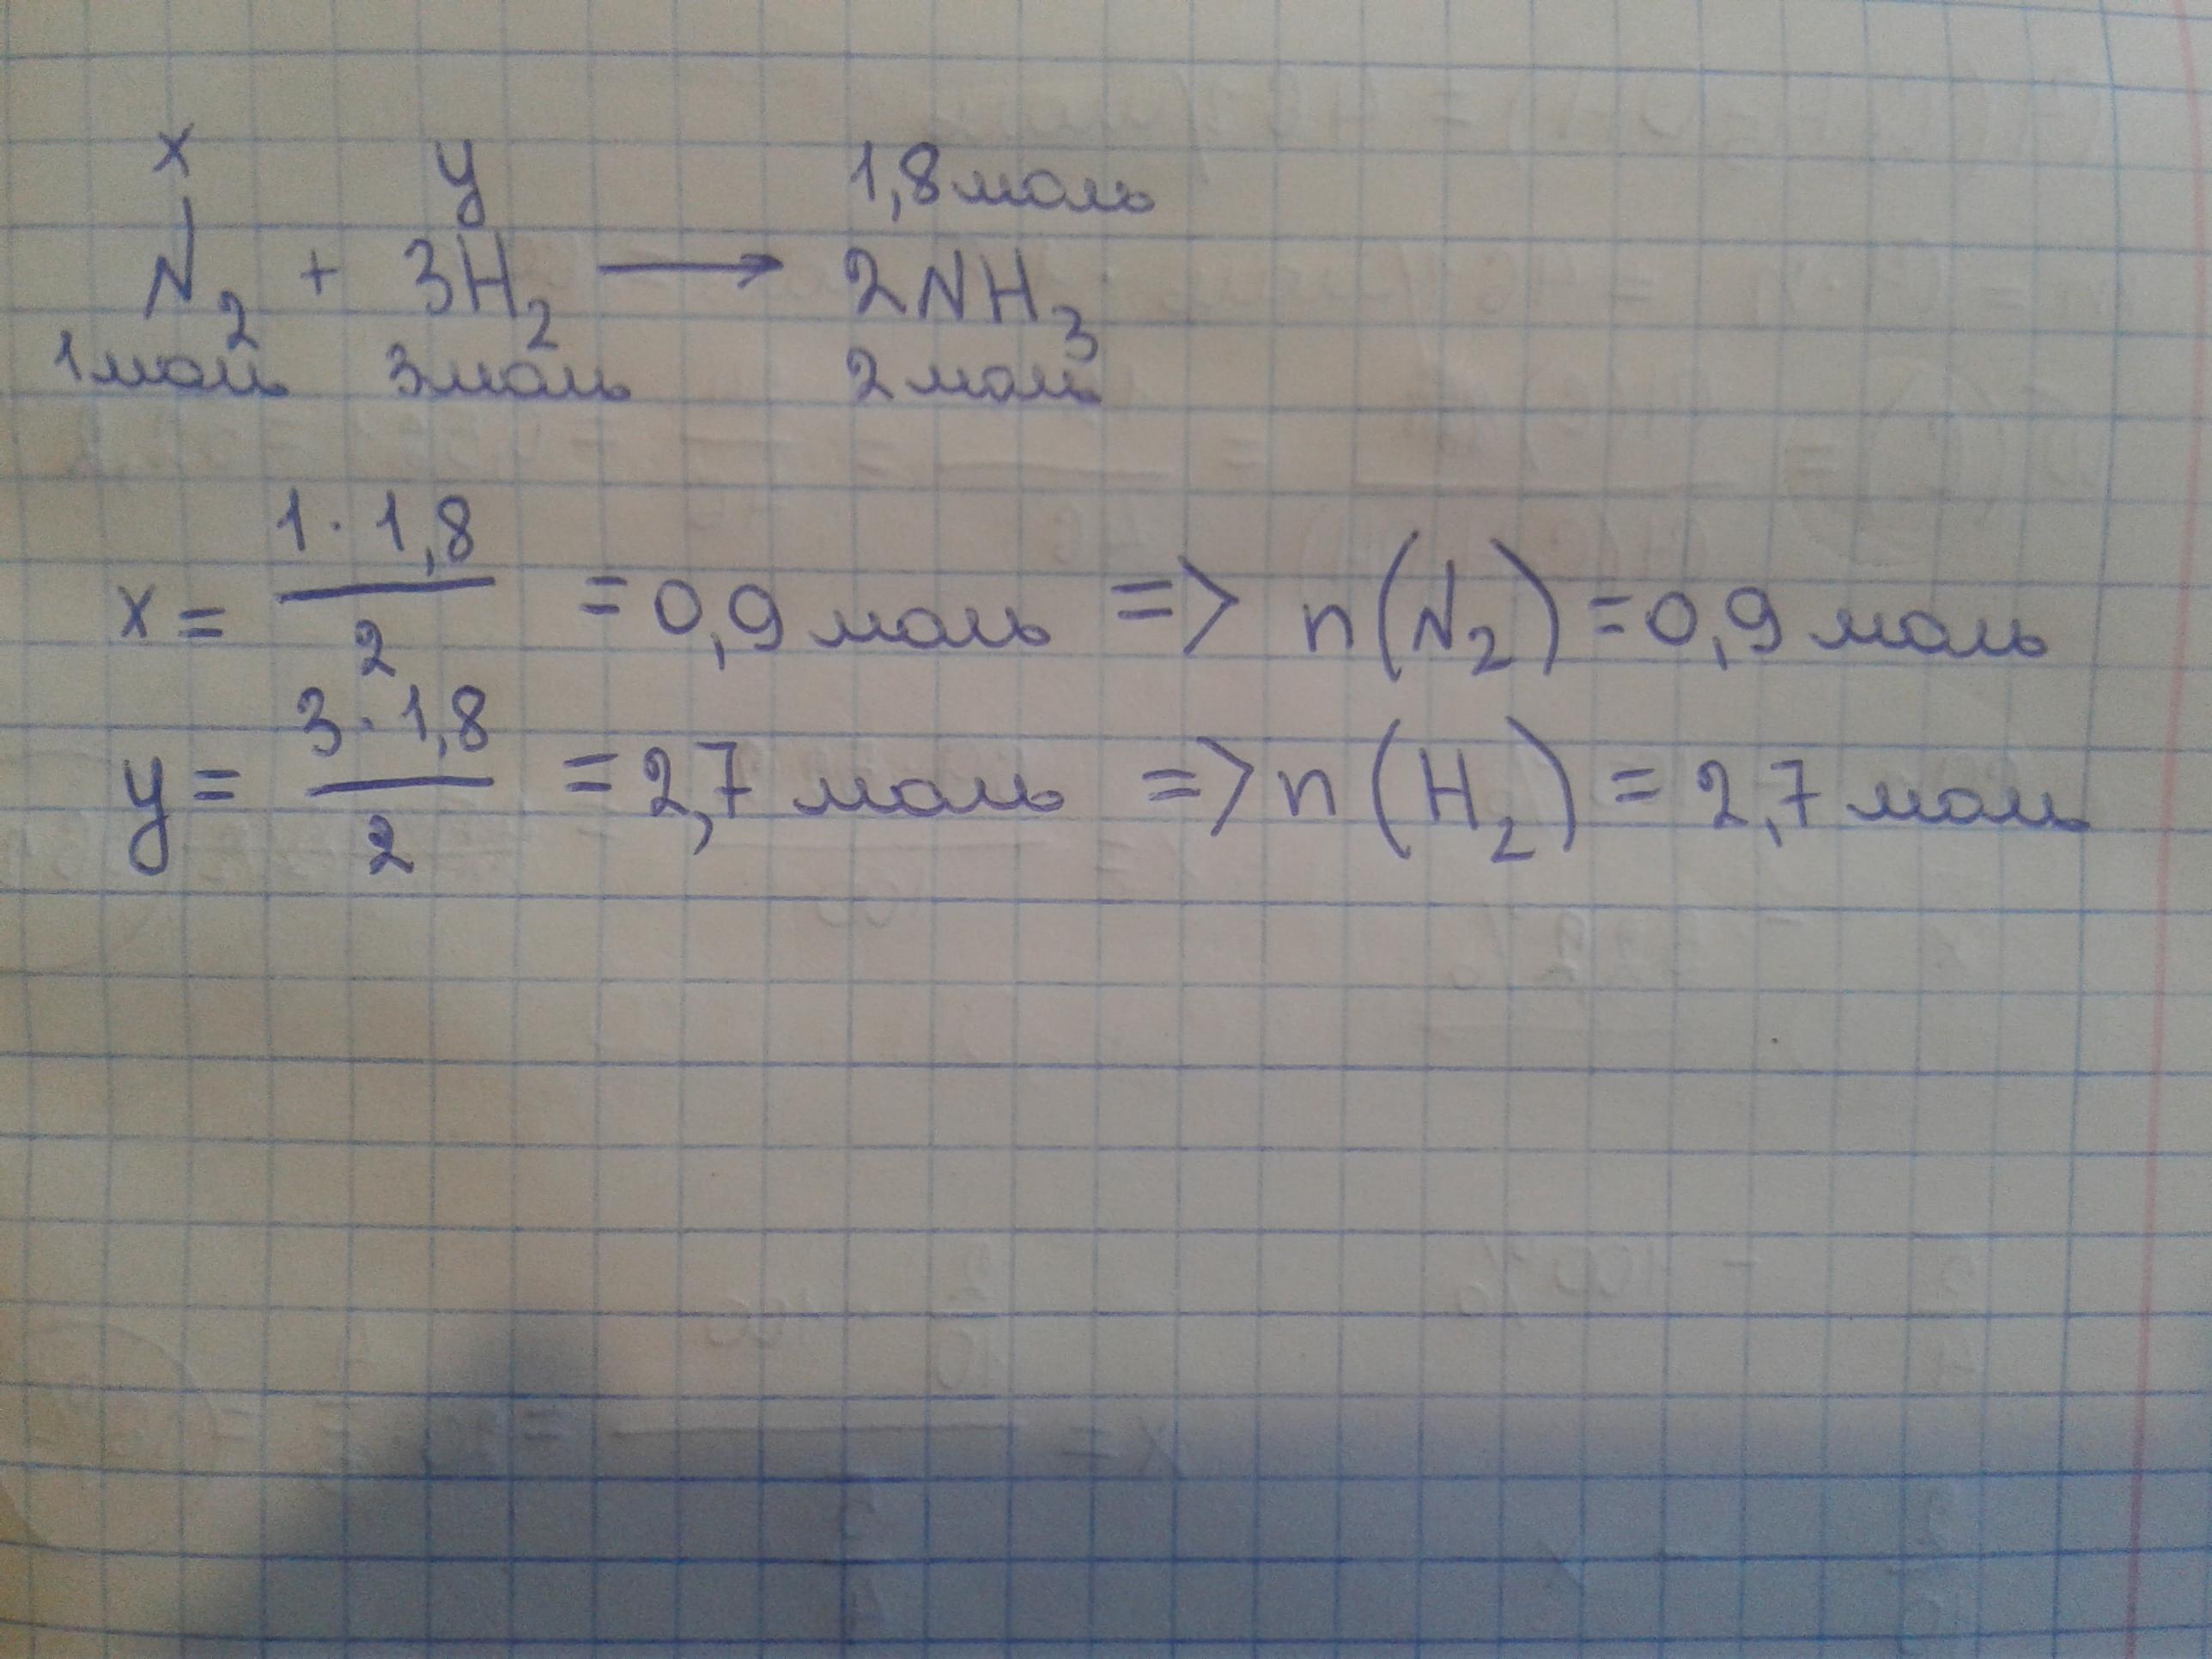 x y 1,8 моль
N₂ + 3H₂ ⟶ 2NH₃
1 моль 3 моль 2 моль
x = (1 · 1,8)/2 = 0,9 моль => n(N₂) = 0,9 моль
y = (3 · 1,8)/2 = 2,7 моль => n(H₂) = 2,7 моль